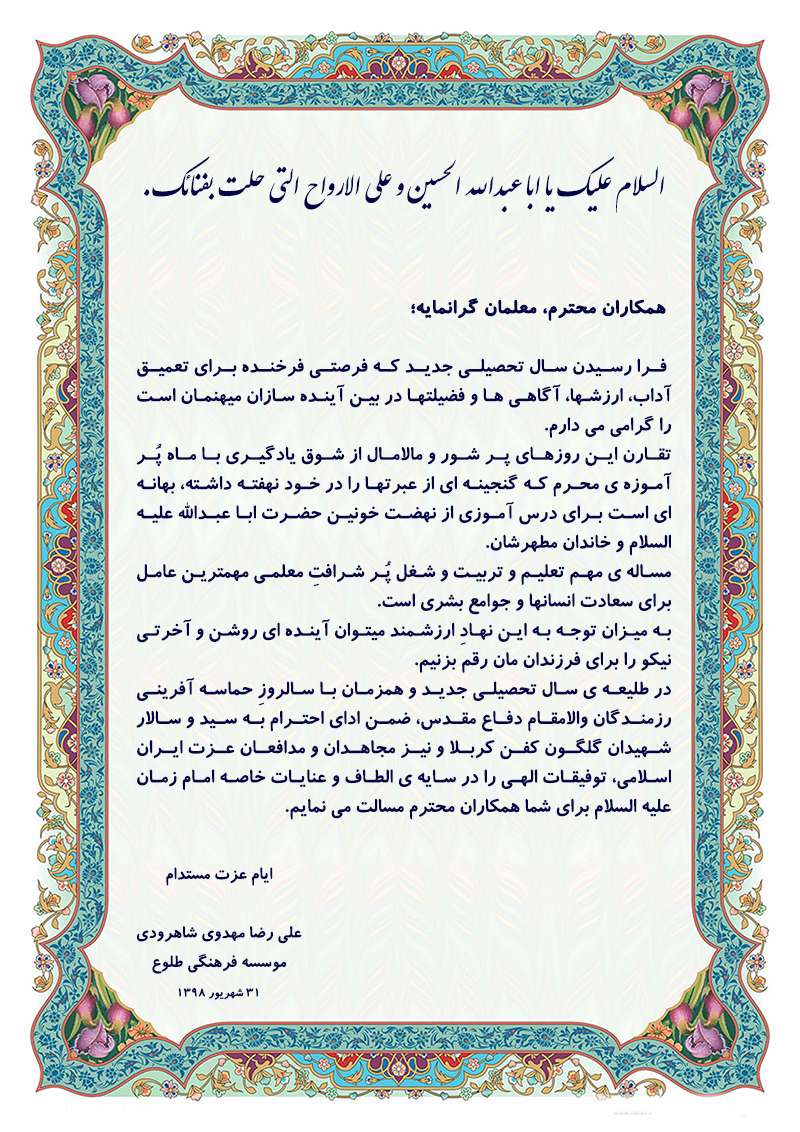 السلام علیک یا ابا عبدالله الحسین و علی الارواح التی حلت بفنائک.
همکاران محترم، معلمان گرانمایه؛
فرا رسیدن سال تحصیلی جدید که فرصتی فرخنده برای تعمیق
آداب، ارزشها، آگاهی ها و فضیلتها در بین آینده سازان میهنمان است
را گرامی می دارم.
تقارن این روزهای پر شور و مالامال از شوق یادگیری با ماه پُر
آموزه ی محرم که گنجینه ای از عبرتها را در خود نهفته داشته، بهانه
ای است برای درس آموزی از نهضت خونین حضرت ابا عبدالله علیه
السلام و خاندان مطهرشان.
مساله ی مهم تعلیم و تربیت و شغل پُر شرافتِ معلمی مهمترین عامل
برای سعادت انسانها و جوامع بشری است.
به میزان توجه به این نهادِ ارزشمند میتوان آینده ای روشن و آخرتی
نیکو را برای فرزندان مان رقم بزنیم.
در طلیعه ی سال تحصیلی جدید و همزمان با سالروزِ حماسه آفرینی
رزمندگان والامقام دفاع مقدس، ضمن ادای احترام به سید و سالار
شهیدان گلگون کفن کربلا و نیز مجاهدان و مدافعان عزت ایران
اسلامی، توفیقات الهی را در سایه ی الطاف و عنایات خاصه امام زمان
علیه السلام برای شما همکاران محترم مسالت می نمایم.
ایام عزت مستدام
علی رضا مهدوی شاهرودی
موسسه فرهنگی طلوع
۳۱ شهریور ۱۳۹۸